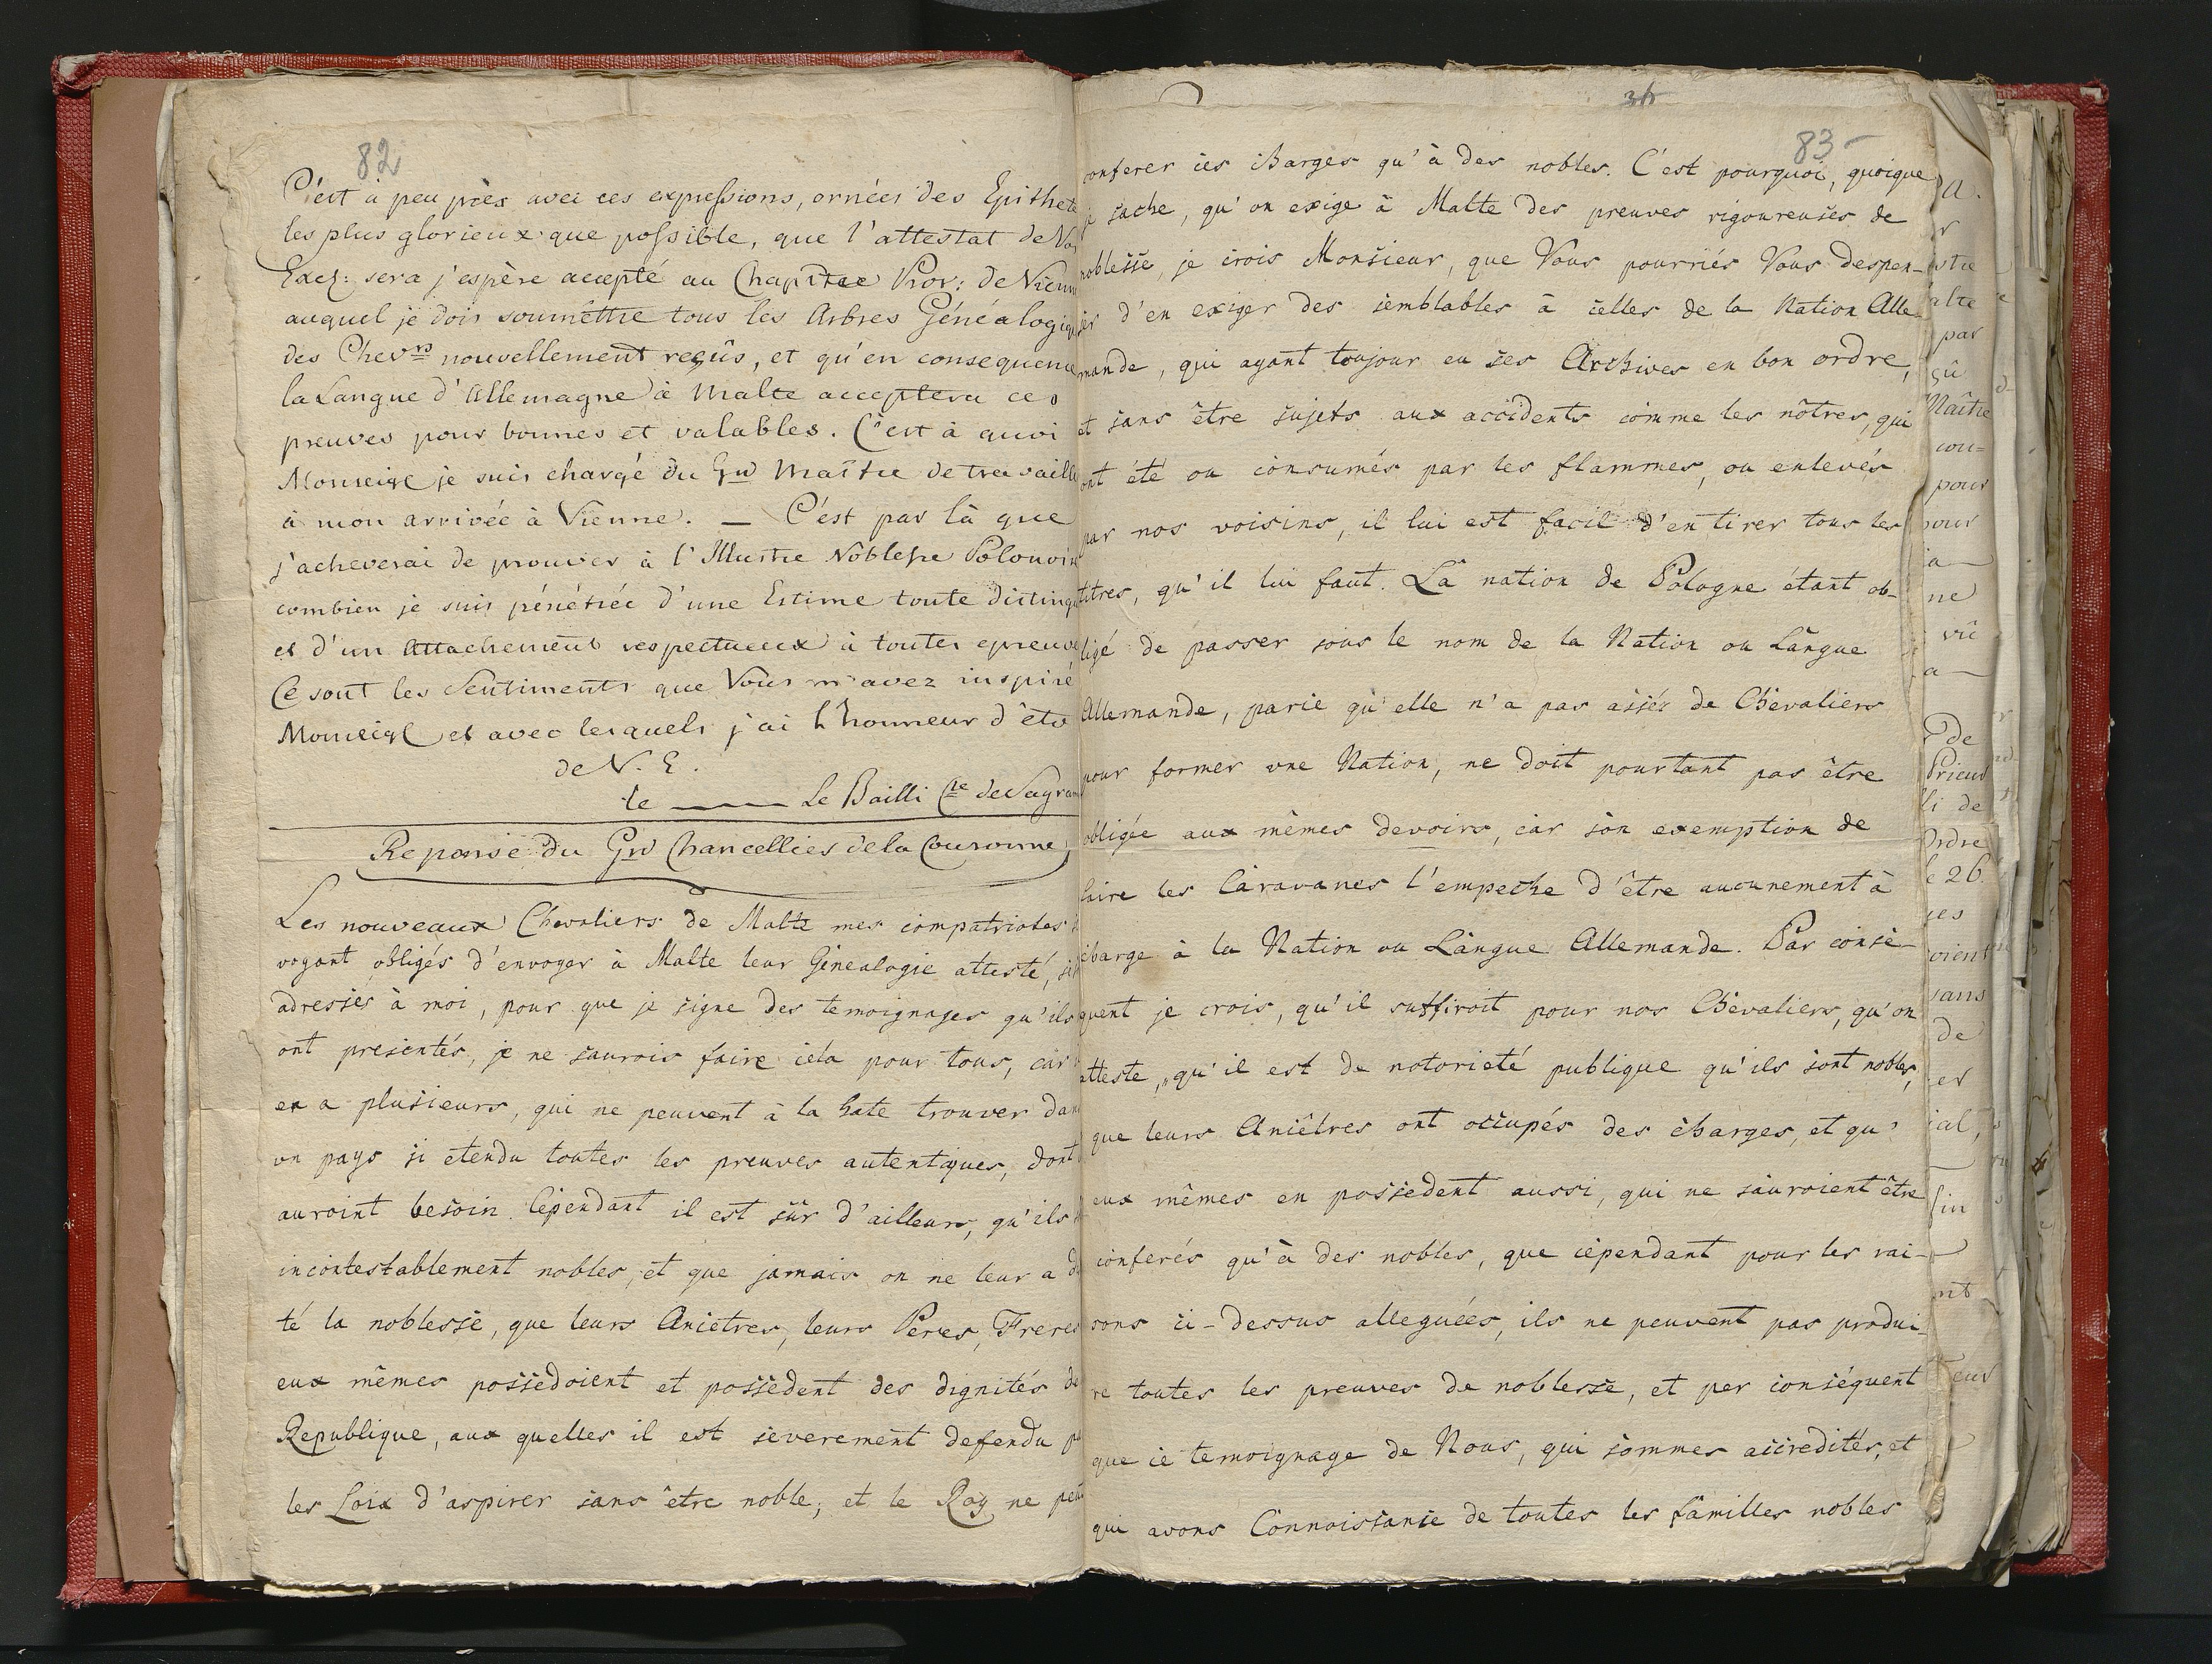 82
C'est à peu près avec ces expressions, ornées des Epithete
les plus glorieux que possible, que l'attestat de Vo
Excl: sera j'espère accepté au Chapître Prov: de Vienn
auquel je dois soumettre tous les Arbres Généalogiqu
des Chev.rs nouvellement reçûs, et qu'en consequence
la Langue d'Allemagne à Malte acceptera ces
preuves pour bonnes et valables. C'est à quoi
Monseigr je suis chargé du Grd Maître de travaille
à mon arrivée à Vienne. — C'est par là que
j'acheverai de prouver à l'Illustre Noblesse Polonois
combien je suis pénétrée d'une Estime toute disting
et d'un Attachement respectueux à toutes epreuve
Ce sont les Sentiments que Vous m'avez inspiré
Monseigr et avec lesquels j'ai l'honneur d'être
de V. E.
le ——— Le Bailli Cte de Sagram
Reponse du Grd Chancellier de la Couronne
Les nouveaux Chevaliers de Malte mes compatriotes
voyant obligés d'envoyer à Malte leur Génealogie attesté,
adressés à moi, pour que je signe des temoignages qu'ils
ont presentés, je ne saurois faire cela pour tous, car
en a plusieurs, qui ne peuvent à la hate trouver dan
un pays si etendu toutes les preuves autentiques, dont
auroint besoin. Cependant il est sûr d'ailleurs, qu'ils
incontestablement nobles, et que jamais on ne leur a di
té la noblesse, que leurs Ancêtres, leurs Peres, Freres
eux mêmes possedoient et possedent des dignités de
Republique, aux quelles il est severement defendu p
les Loix d'aspirer sans être noble; et le Roy ne peu
36
83
conferer ces charges qu'à des nobles. C'est pourquoi, quoique
je sache, qu'on exige à Malte des preuves rigoureuses de
noblesse, je crois Monsieur, que Vous pourriés Vous despen-
ser d'en exiger des semblables à celles de la Nation Alle
mande, qui ayant toujour eu ses Archives en bon ordre,
et sans être sujets aux accidents comme les nôtres, qui
ont été ou consumés par les flammes, ou enlevés
par nos voisins, il lui est facil d'en tirer tous les
titres, qu'il lui faut. La nation de Pologne étant ob-
ligé de passer sous le nom de la Nation ou Langue
Allemande, parce qu'elle n'a pas assés de Chevaliers
pour former une Nation, ne doit pourtant pas être
obligée aux mêmes devoirs, car son exemption de
faire les Caravanes l'empeche d'être aucunement à
charge à la Nation ou Langue Allemande. Par conse-
quent je crois, qu'il suffiroit pour nos Chevaliers, qu'on
atteste, „qu'il est de notorieté publique qu'ils sont nobles,
que leurs Ancêtres ont occupés des charges, et qu'
eux mêmes en possedent aussi, qui ne sauroient être
conferés qu'à des nobles, que cependant pour les rai-
sons ci-dessus alleguées, ils ne peuvent pas produi-
re toutes les preuves de noblesse, et per conséquent
que ce temoignage de Nous, qui sommes accredités, et
qui avons Connoissance de toutes les familles nobles